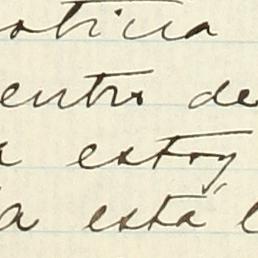 oticia
entro de
a estoy
a está l